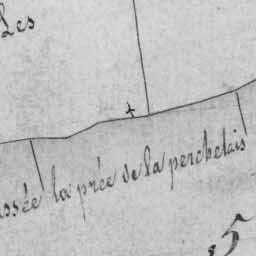 Les
ussée la prée de la perchelais
5